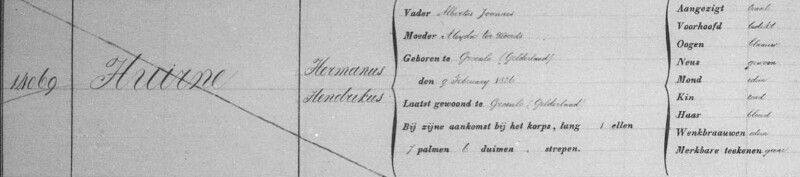 14069
Huirne
Hermanus
Hendrikus
Vader Albertus Joannes
Moeder Aleyda ter Woerds
Geboren te Groenlo (Gelderland)
den 9 February 1836
Laatst gewoond te Groenlo (Gelderland)
Bij zijne aankomst bij het korps, lang 1 ellen
7 palmen 6 duimen . strepen.
Aangezigt ovaal
Voorhoofd bedekt
Oogen blauw
Neus gewoon
Mond idem
Kin rond
Haar blond
Wenkbraauwen idem
Merkbare teekenen geene